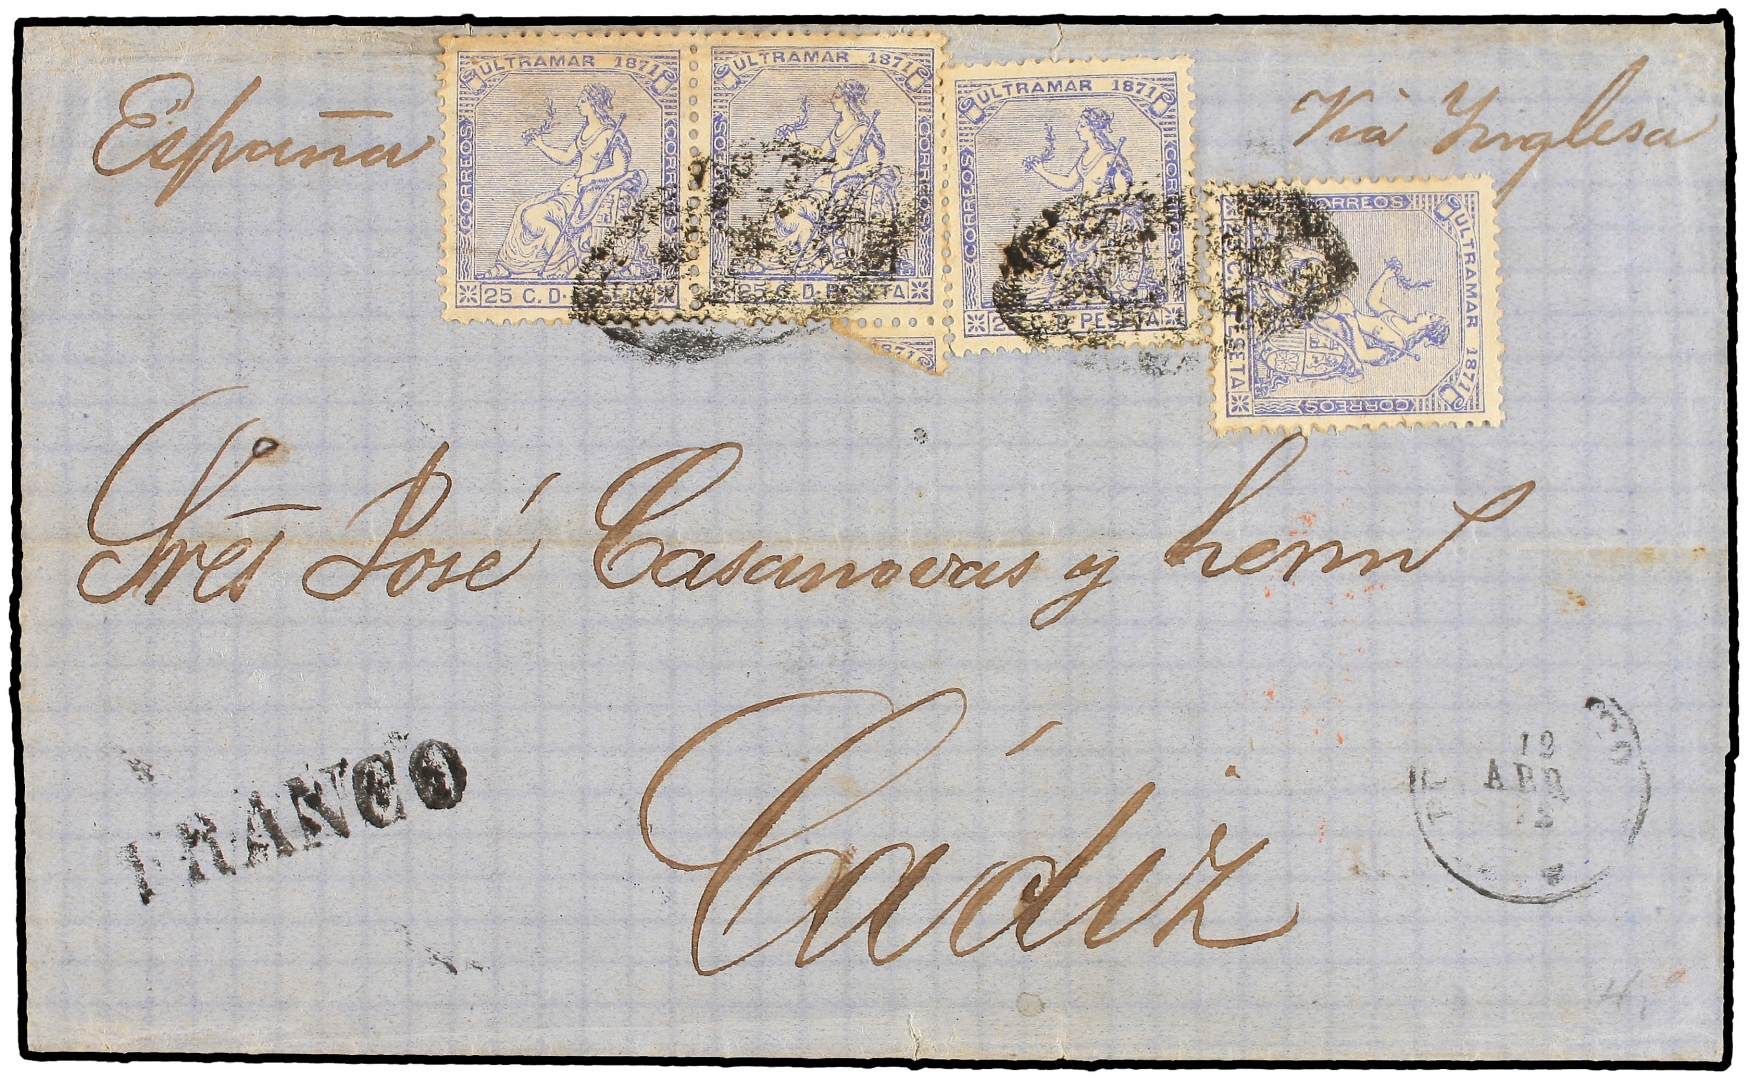 España
Via Ynglesa
ULTRAMAR 1871
CORREOS
CORREOS
25 C. D.
ULTRAMAR 1871
CORREOS
25 C. D. PESETA
ULTRAMAR 1871
CORREOS
CORREOS
C. D. PESETA
ULTRAMAR 1871
CORREOS
CORREOS
1871
Sres José Casanovas y herm
Cádiz
FRANCO
19
ABR